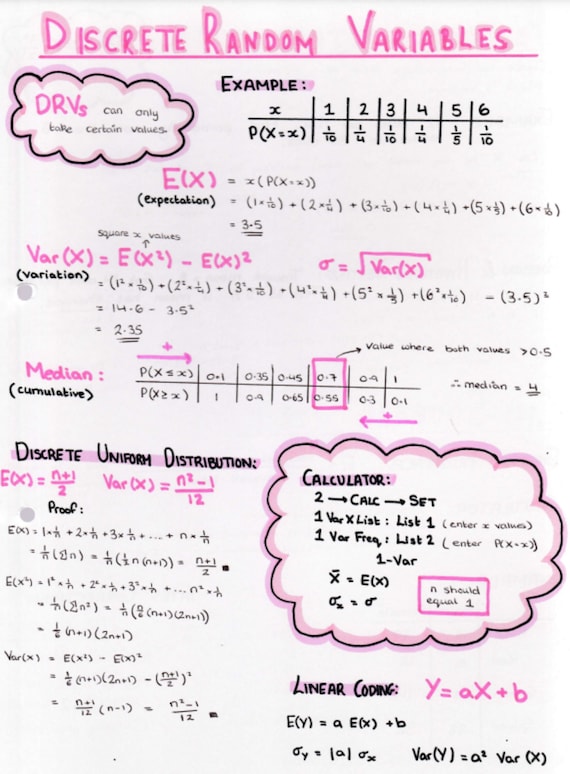 DISCRETE RANDOM VARIABLES
DRVs can only
take certain values.
EXAMPLE:
x 1 2 3 4 5 6
P(X=x) 1/10 1/4 1/10 1/4 1/5 1/10
E(X) = x(P(X=x))
(expectation) = (1×1/10) + (2×1/4) + (3×1/10) + (4×1/4) + (5×1/5) + (6×1/10)
= 3.5
square x values
Var(X) = E(X²) - E(X)² σ = √Var(X)
(variation) = (1²×1/10) + (2²×1/4) + (3²×1/10) + (4²×1/4) + (5²×1/5) + (6²×1/10) - (3.5)²
= 14.6 - 3.5²
= 2.35
+
value where both values >0.5
Median: P(X≤x) 0.1 0.35 0.45 0.7 0.9 1
(cumulative) P(X≥x) 1 0.9 0.65 0.55 0.3 0.1
∴ median = 4
+
DISCRETE UNIFORM DISTRIBUTION:
E(X) = n+1/2 Var(X) = n²-1/12
Proof:
E(X) = 1×1/n + 2×1/n + 3×1/n + ... + n×1/n
= 1/n (Σn) = 1/n (1/2 n(n+1)) = n+1/2 ■
E(X²) = 1²×1/n + 2²×1/n + 3²×1/n + ... n²×1/n
= 1/n (Σn²) = 1/n (n/6 (n+1)(2n+1))
= 1/6 (n+1)(2n+1)
Var(X) = E(X²) - E(X)²
= 1/6 (n+1)(2n+1) - (n+1/2)²
= n+1/12 (n-1) = n²-1/12 ■
CALCULATOR:
2 → CALC → SET
1 Var X List : List 1 (enter x values)
1 Var Freq : List 2 (enter P(X=x))
1-Var
x̄ = E(X)
σx = σ
n should
equal 1
LINEAR CODING: Y = aX + b
E(Y) = a E(X) + b
σY = |a| σx Var(Y) = a² Var (X)